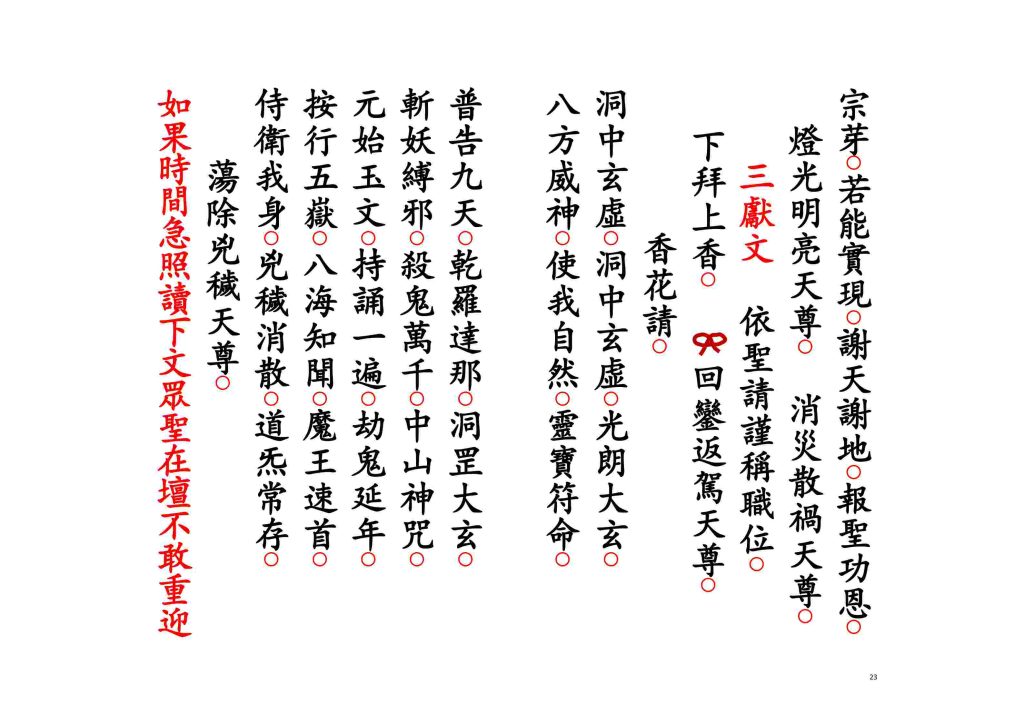 宗芽○若能實現○謝天謝地○報聖功恩○
燈光明亮天尊○ 消災散禍天尊○
三獻文 依聖請謹稱職位○
下拜上香○ 回鑾返駕天尊○
香花請○
洞中玄虛○洞中玄虛○光朗大玄○
八方威神○使我自然○靈寶符命○
普告九天○乾羅達那○洞罡大玄○
斬妖縛邪○殺鬼萬千○中山神咒○
元始玉文○持誦一遍○劫鬼延年○
按行五嶽○八海知聞○魔王速首○
侍衛我身○兇穢消散○道炁常存○
蕩除兇穢天尊○
如果時間急照讀下文眾聖在壇不敢重迎
23